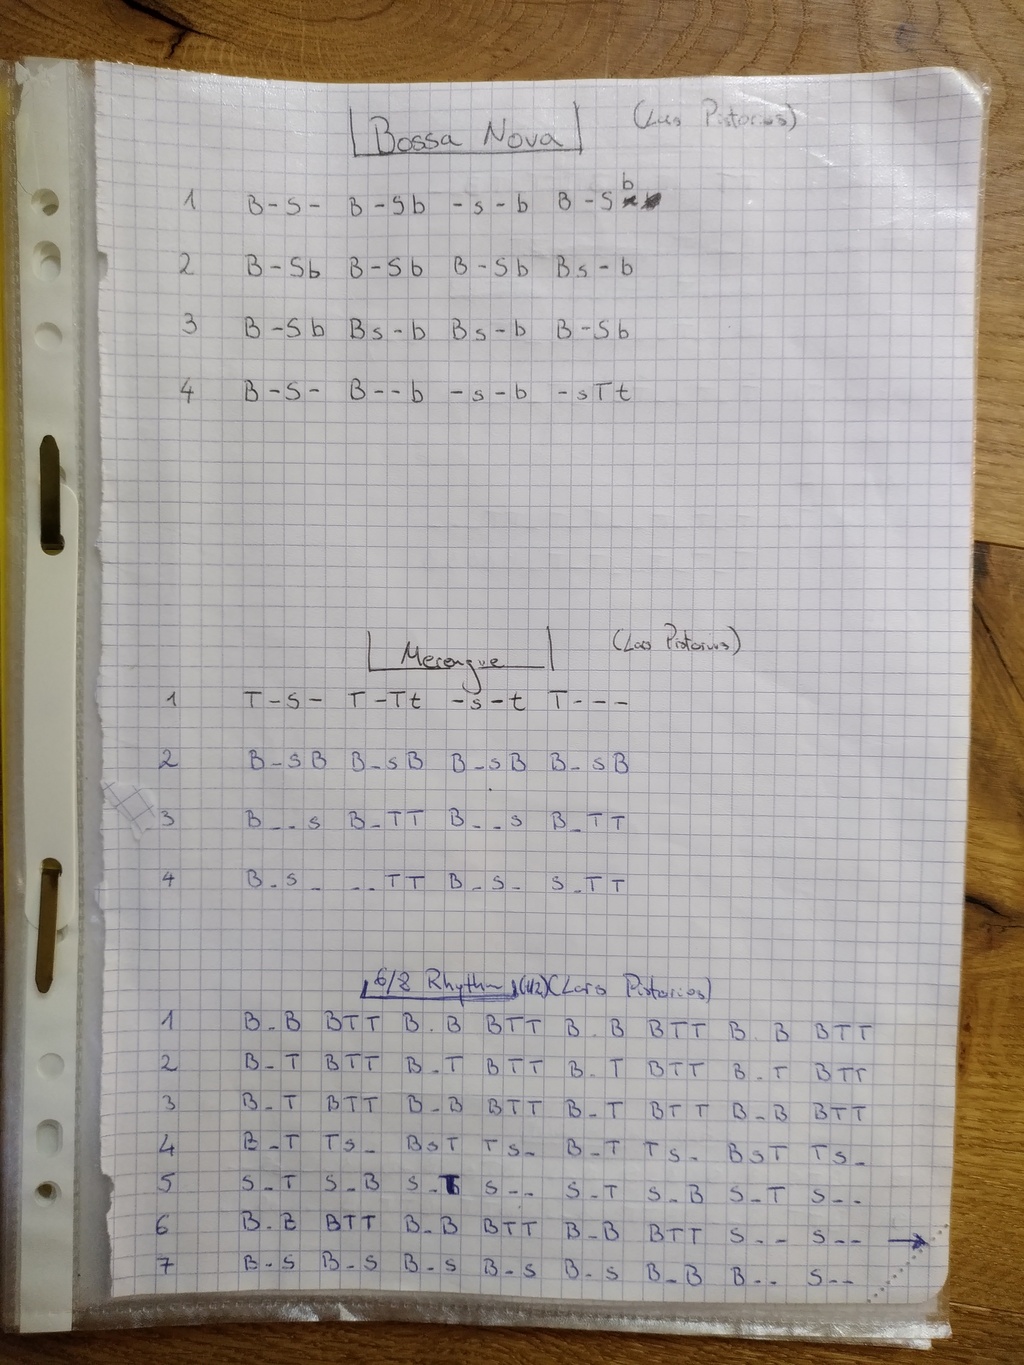 Bossa Nova (Lus Pistorius)
b
1 B - S - B - S b - s - b B - S
2 B - S b B - S b B - S b B s - b
3 B - S b B s - b B s - b B - S b
4 B - S - B - - b - s - b - s T t
Merengue (Lars Pistorius)
1 T - S - T - T t - s - t T - - -
2 B - s B B - s B B - s B B - s B
3 B - - s B - T T B - - s B - T T
4 B - s - - - T T B - s - s - T T
6/8 Rhythm (1/2) (Lars Pistorius)
1 B - B B T T B - B B T T B - B B T T B - B B T T
2 B - T B T T B - T B T T B - T B T T B - T B T T
3 B - T B T T B - B B T T B - T B T T B - B B T T
4 B - T T s - B s T T s - B - T T s - B s T T s -
5 S - T S - B S - T S - - S - T S - B S - T S - -
6 B - B B T T B - B B T T B - B B T T S - - S - - →
7 B - S B - S B - S B - S B - S B - B B - - S - -